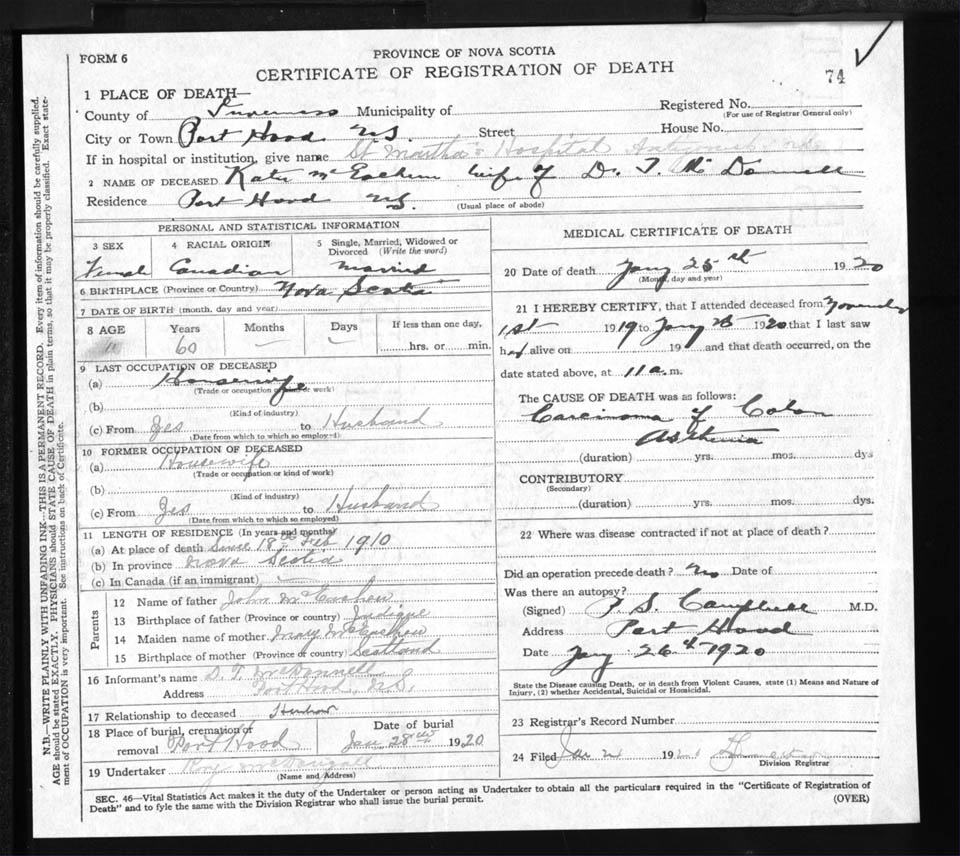 FORM 6
PROVINCE OF NOVA SCOTIA
CERTIFICATE OF REGISTRATION OF DEATH
74
N.B.—WRITE PLAINLY WITH UNFADING INK—THIS IS A PERMANENT RECORD. Every item of information should be carefully supplied.
AGE should be stated EXACTLY. PHYSICIANS should STATE CAUSE OF DEATH in plain terms, so that it may be properly classified. Exact statement of OCCUPATION is very important. See instructions on back of Certificate.
1 PLACE OF DEATH—
County of Inverness Municipality of Registered No.
(For use of Registrar General only)
City or Town Port Hood N.S. Street House No.
If in hospital or institution, give name St Martha's Hospital
2 NAME OF DECEASED Kate McEachern wife of D. T. McDonnell
Residence Port Hood N.S.
(Usual place of abode)
PERSONAL AND STATISTICAL INFORMATION
3 SEX 4 RACIAL ORIGIN 5 Single, Married, Widowed or Divorced (Write the word)
Female Canadian Married
6 BIRTHPLACE (Province or Country) Nova Scotia
7 DATE OF BIRTH (month, day and year)
8 AGE Years Months Days If less than one day,
60 — — hrs. or min.
9 LAST OCCUPATION OF DECEASED
(a) Housewife
(Trade or occupation or kind of work)
(b)
(Kind of industry)
(c) From Yes to Husband
(Date from which to which so employed)
10 FORMER OCCUPATION OF DECEASED
(a) Housewife
(Trade or occupation or kind of work)
(b)
(Kind of industry)
(c) From Yes to Husband
(Date from which to which so employed)
11 LENGTH OF RESIDENCE (In years and months)
(a) At place of death Since 18 Feb 1910
(b) In province Nova Scotia
(c) In Canada (if an immigrant)
Parents
12 Name of father John McEachern
13 Birthplace of father (Province or country) Judique
14 Maiden name of mother Mary McEachern
15 Birthplace of mother (Province or country) Scotland
16 Informant's name D. T. McDonnell
Address Port Hood, N.S.
17 Relationship to deceased
18 Place of burial, cremation or removal Port Hood
Date of burial
Jan 28th 1920
19 Undertaker Roy McDougall
(Name and Address)
MEDICAL CERTIFICATE OF DEATH
20 Date of death Jany 25th 1920
(Month, day and year)
21 I HEREBY CERTIFY, that I attended deceased from November
1st 1919 to Jany 25 1920 that I last saw
her alive on 19 and that death occurred, on the
date stated above, at 11 a. m.
The CAUSE OF DEATH was as follows:
Carcinoma of Colon
Asthenia
(duration) yrs. mos. dys
CONTRIBUTORY
(Secondary)
(duration) yrs. mos. dys.
22 Where was disease contracted if not at place of death?
Did an operation precede death? No Date of
Was there an autopsy?
(Signed) P. S. Campbell M.D.
Address Port Hood
Date Jany 26th 1920
State the Disease causing Death, or in death from Violent Causes, state (1) Means and Nature of Injury, (2) whether Accidental, Suicidal or Homicidal.
23 Registrar's Record Number
24 Filed Jan 19
Division Registrar
SEC. 46—Vital Statistics Act makes it the duty of the Undertaker or person acting as Undertaker to obtain all the particulars required in the "Certificate of Registration of
Death" and to fyle the same with the Division Registrar who shall issue the burial permit.
(OVER)